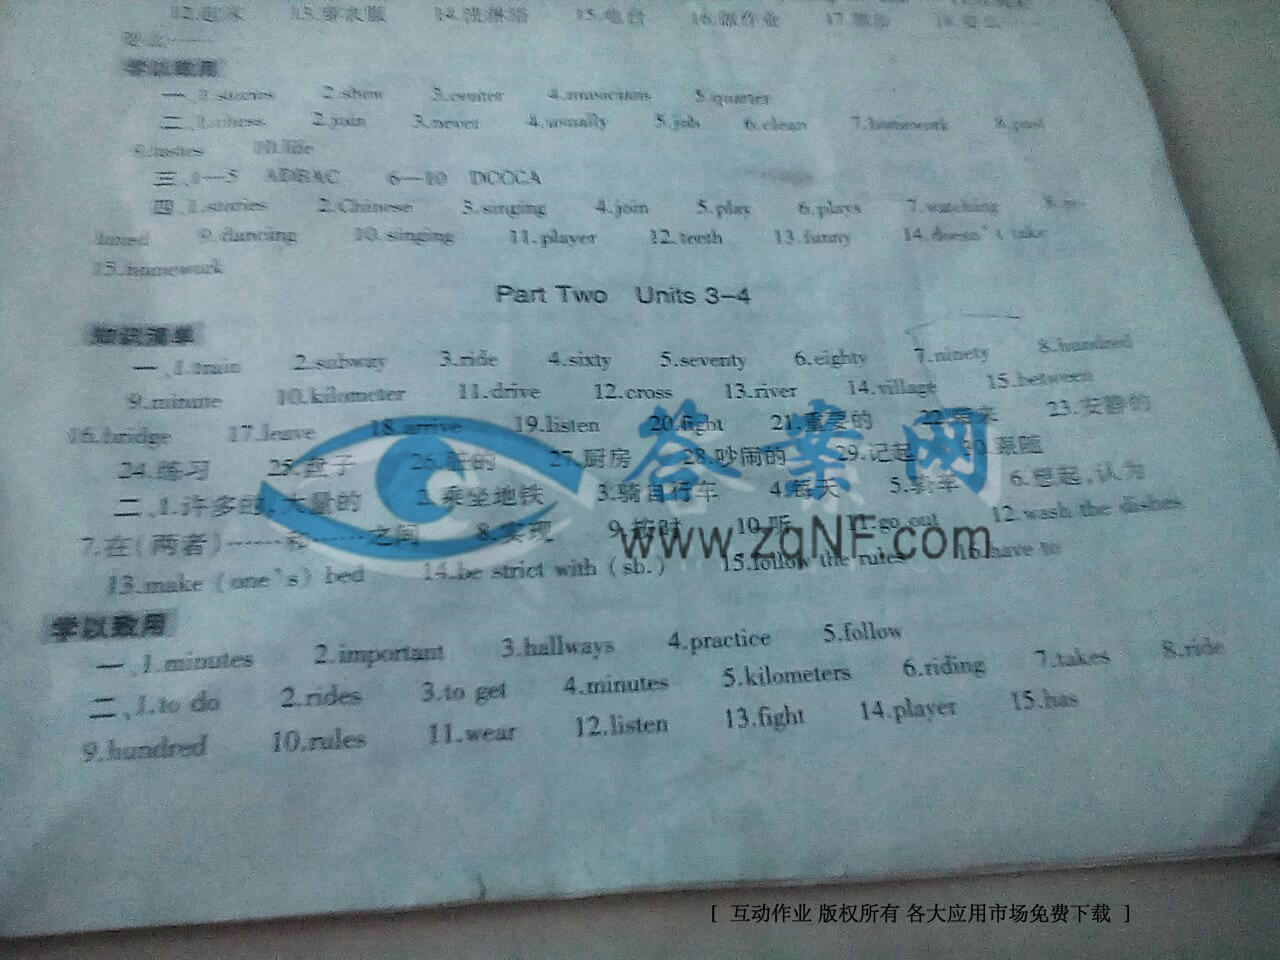 12.起床 13.穿衣服 14.洗淋浴 15.电台 16.做作业 17.散步
学以致用
一、1.stories 2.show 3.center 4.musicians 5.quarter
二、1.chess 2.join 3.never 4.usually 5.job 6.clean 7.homework 8.past
9.tastes 10.life
三、1—5 ADBAC 6—10 DCCCA
四、1.stories 2.Chinese 3.singing 4.join 5.play 6.plays 7.watching
9.dancing 10.singing 11.player 12.teeth 13.funny 14.doesn't take
15.homework
Part Two Units 3-4
知识清单
一、1.train 2.subway 3.ride 4.sixty 5.seventy 6.eighty 7.ninety 8.hundred
9.minute 10.kilometer 11.drive 12.cross 13.river 14.village 15.between
16.bridge 17.leave 18.arrive 19.listen 20.fight 21.重要的 22.带来 23.安静的
24.练习 25.盘子 26.脏的 27.厨房 28.吵闹的 29.记起 30.跟随
二、1.许多的,大量的 2.乘坐地铁 3.骑自行车 4.每天 5.骑车 6.想起,认为
7.在(两者)……和……之间 8.实现 9.按时 10.听 11.go out 12.wash the dishes
13.make (one's) bed 14.be strict with (sb.) 15.follow the rules 16.have to
学以致用
一、1.minutes 2.important 3.hallways 4.practice 5.follow
二、1.to do 2.rides 3.to get 4.minutes 5.kilometers 6.riding 7.takes 8.ride
9.hundred 10.rules 11.wear 12.listen 13.fight 14.player 15.has
答案网
www.zqNF.com
[ 互动作业 版权所有 各大应用市场免费下载 ]